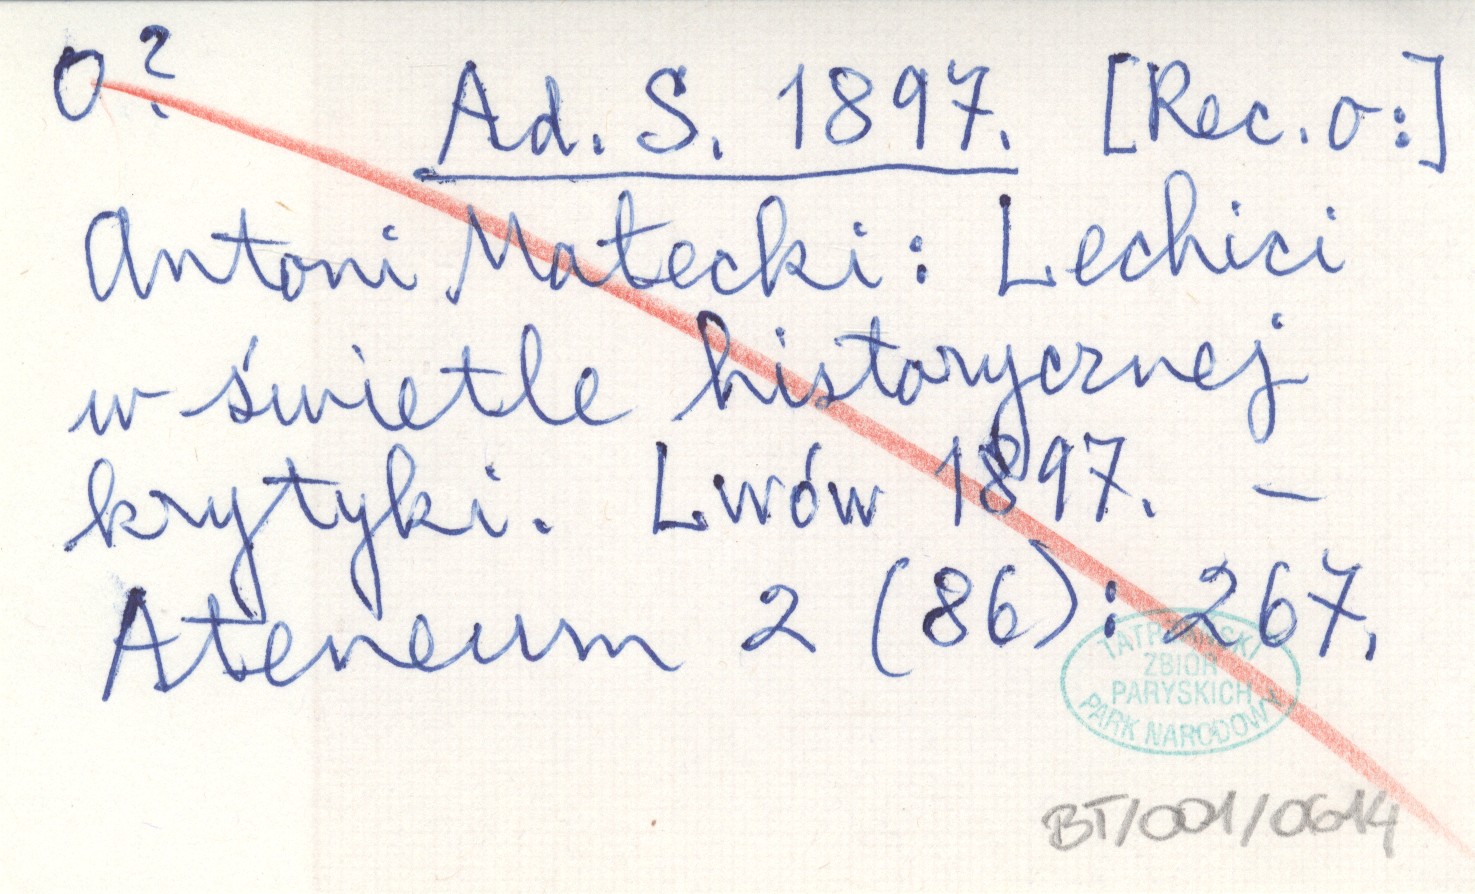 O?
Ad. S. 1897. [Rec. o:]
Antoni Małecki: Lechici
w świetle historycznej
krytyki. Lwów 1897. –
Ateneum 2 (86): 267.
TATRZAŃSKI
ZBIÓR
PARYSKICH
PARK NARODOWY
BT/001/0614